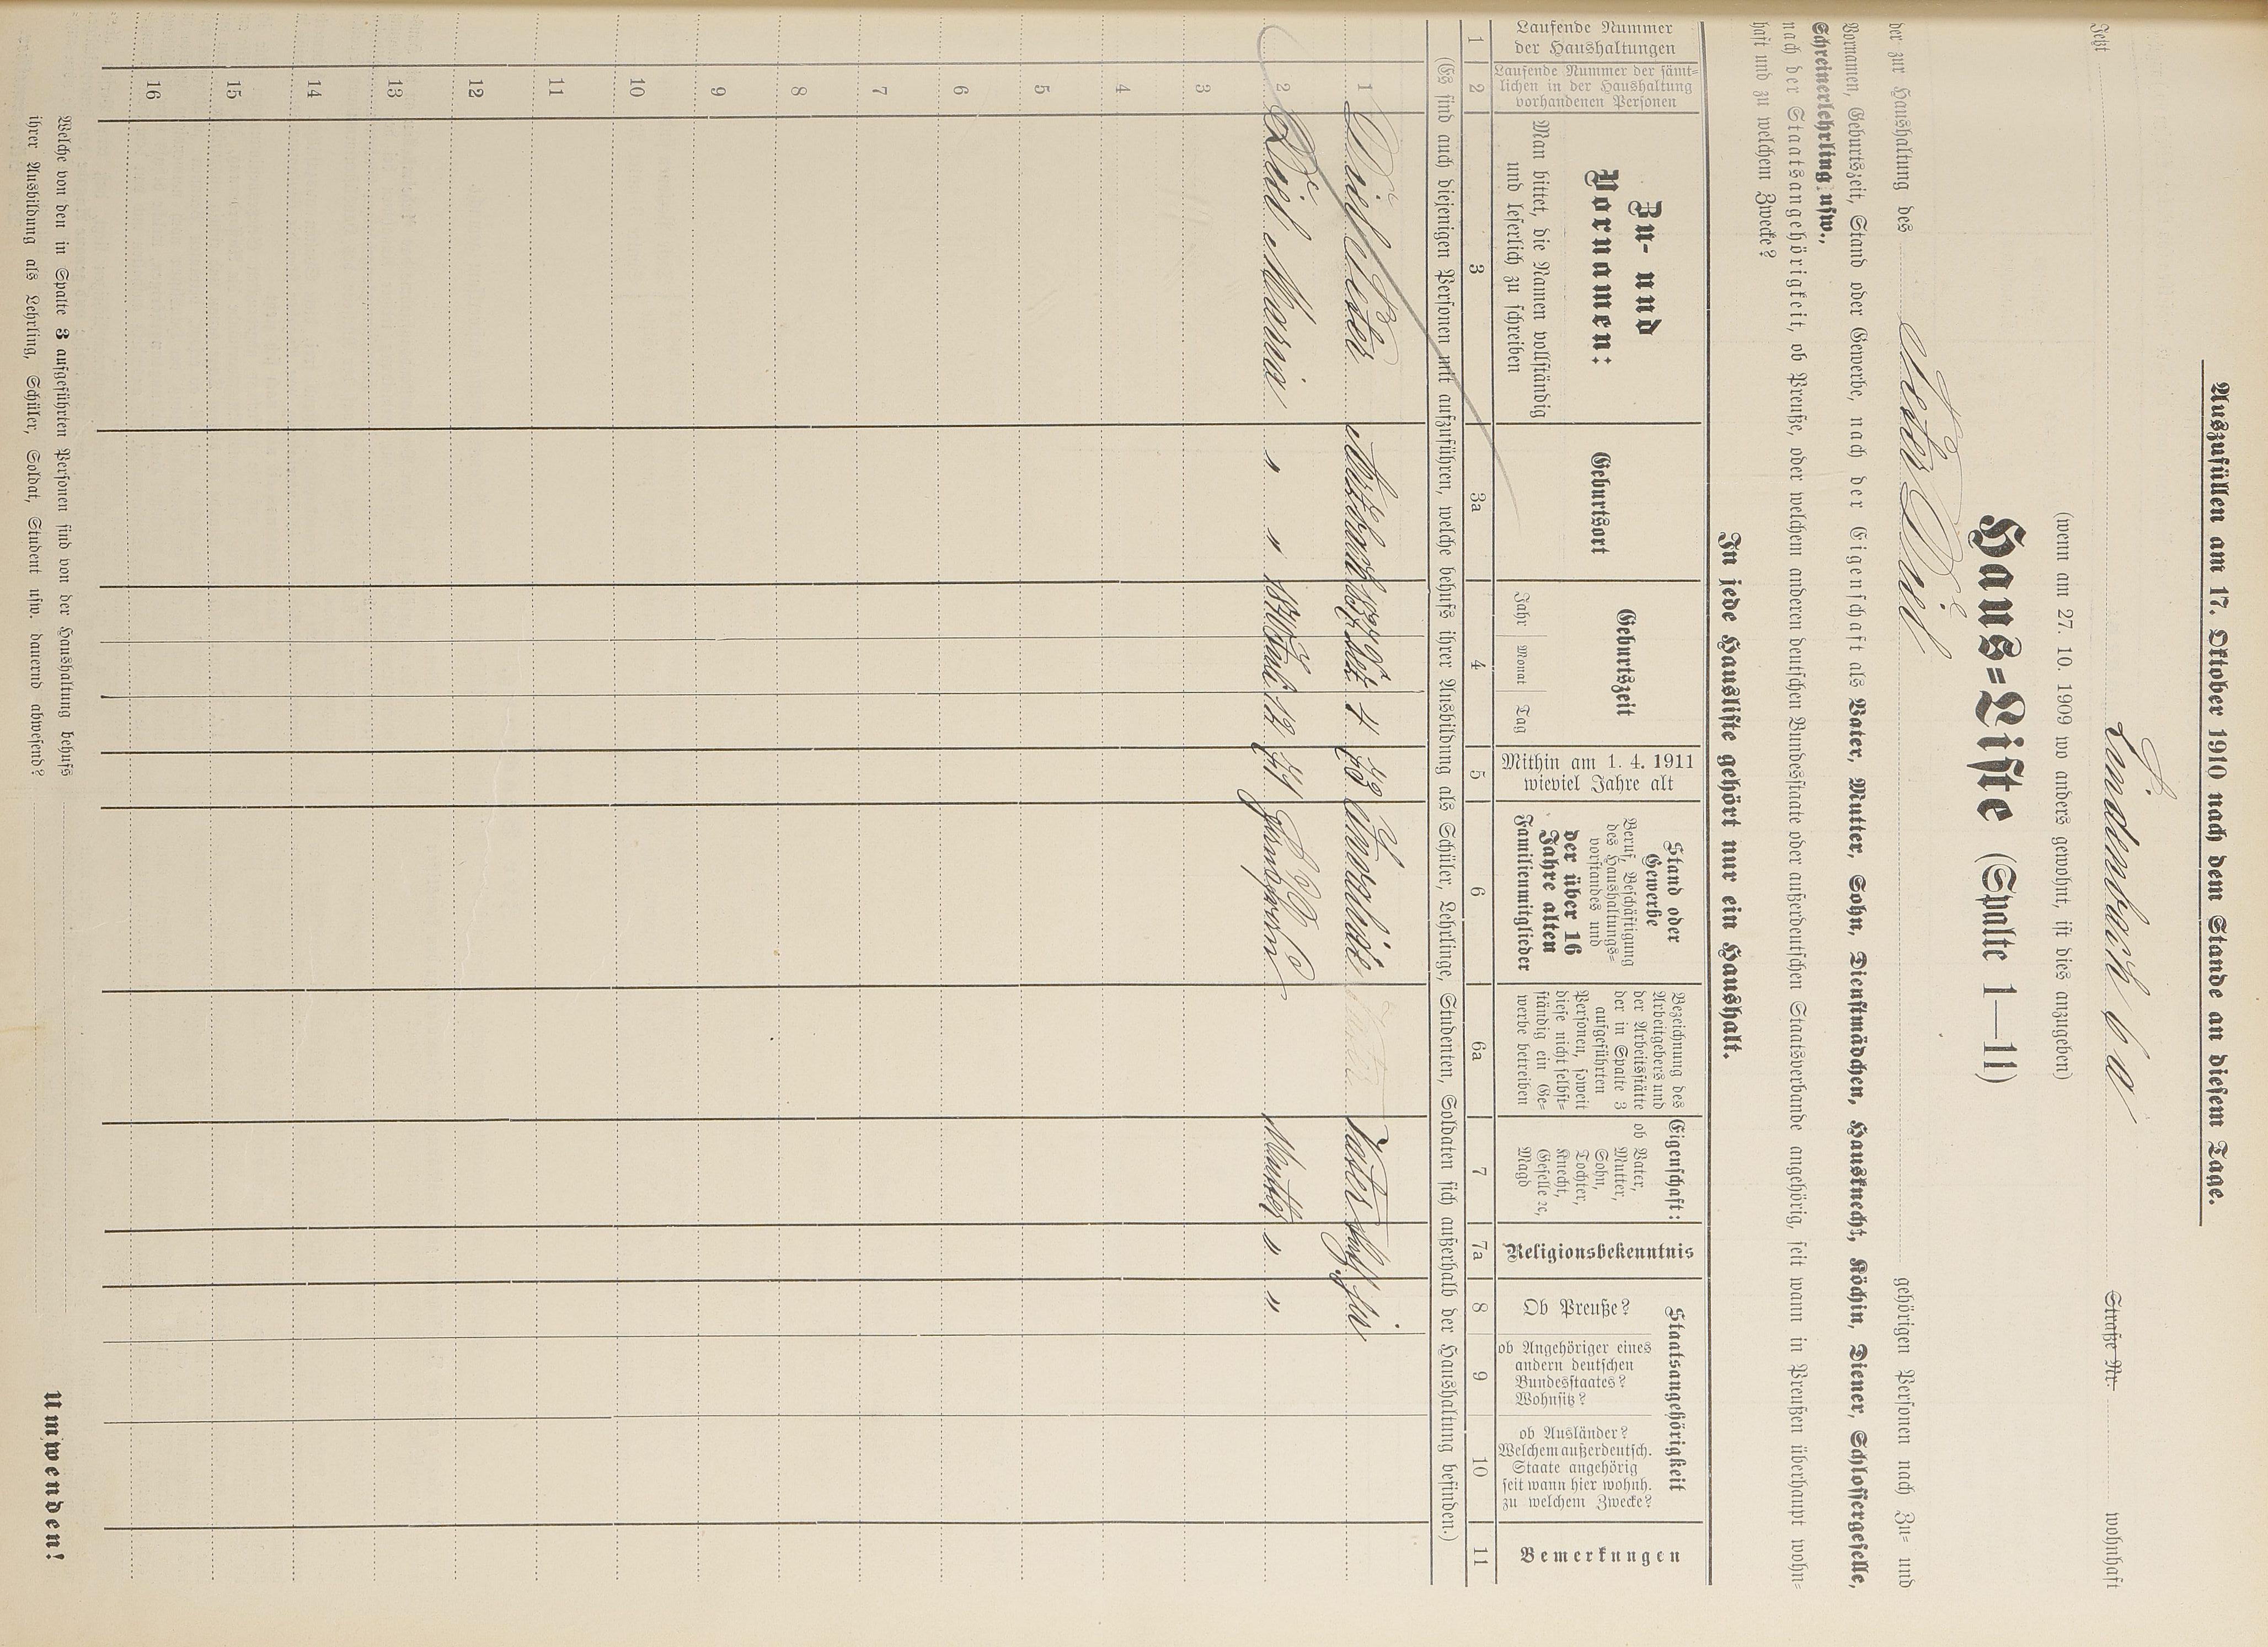 Auszufüllen am 17. Oktober 1910 nach dem Stande an diesem Tage.
Jetzt Lindenbach 6a Straße Nr. wohnhaft
(wenn am 27. 10. 1909 wo anders gewohnt, ist dies anzugeben)
Haus=Liste (Spalte 1—11)
der zur Haushaltung des Peter Deil gehörigen Personen nach Zu= und
Vornamen, Geburtszeit, Stand oder Gewerbe, nach der Eigenschaft als Vater, Mutter, Sohn, Dienstmädchen, Hausknecht, Köchin, Diener, Schlossergeselle,
Schreinerlehrling usw.,
nach der Staatsangehörigkeit, ob Preuße, oder welchem anderen deutschen Bundesstaate oder außerdeutschen Staatsverbande angehörig, seit wann in Preußen überhaupt wohn=
haft und zu welchem Zwecke?
In jede Hausliste gehört nur ein Haushalt.
Laufende Nummer
der Haushaltungen
Laufende Nummer der sämt=
lichen in der Haushaltung
vorhandenen Personen
Zu- und
Vornamen:
Man bittet, die Namen vollständig
und leserlich zu schreiben
Geburtsort
Geburtszeit
Jahr Monat Tag
Mithin am 1. 4. 1911
wieviel Jahre alt
Stand oder
Gewerbe
Beruf, Beschäftigung
des Haushaltungs=
vorstandes und
der über 16
Jahre alten
Familienmitglieder
Bezeichnung des
Arbeitgebers und
der Arbeitsstätte
der in Spalte 3
aufgeführten
Personen, soweit
diese nicht selbst=
ständig ein Ge=
werbe betreiben
Eigenschaft:
ob Vater,
Mutter,
Sohn,
Tochter,
Knecht,
Geselle ec,
Magd
Religionsbekenntnis
Staatsangehörigkeit
Ob Preuße?
ob Angehöriger eines
andern deutschen
Bundesstaates?
Wohnsitz?
ob Ausländer?
Welchem außerdeutsch.
Staate angehörig
seit wann hier wohnh.
zu welchem Zwecke?
Bemerkungen
1 2 3 3a 4 5 6 6a 7 7a 8 9 10 11
(Es sind auch diejenigen Personen mit aufzuführen, welche behufs ihrer Ausbildung als Schüler, Lehrlinge, Studenten, Soldaten sich außerhalb der Haushaltung befinden.)
1 Deil Peter 4 Vater
2 Deil Maria " " 1870 12 41 Mutter " "
3
4
5
6
7
8
9
10
11
12
13
14
15
16
Welche von den in Spalte 3 aufgeführten Personen sind von der Haushaltung behufs
ihrer Ausbildung als Lehrling, Schüler, Soldat, Student usw. dauernd abwesend?
Umwenden!